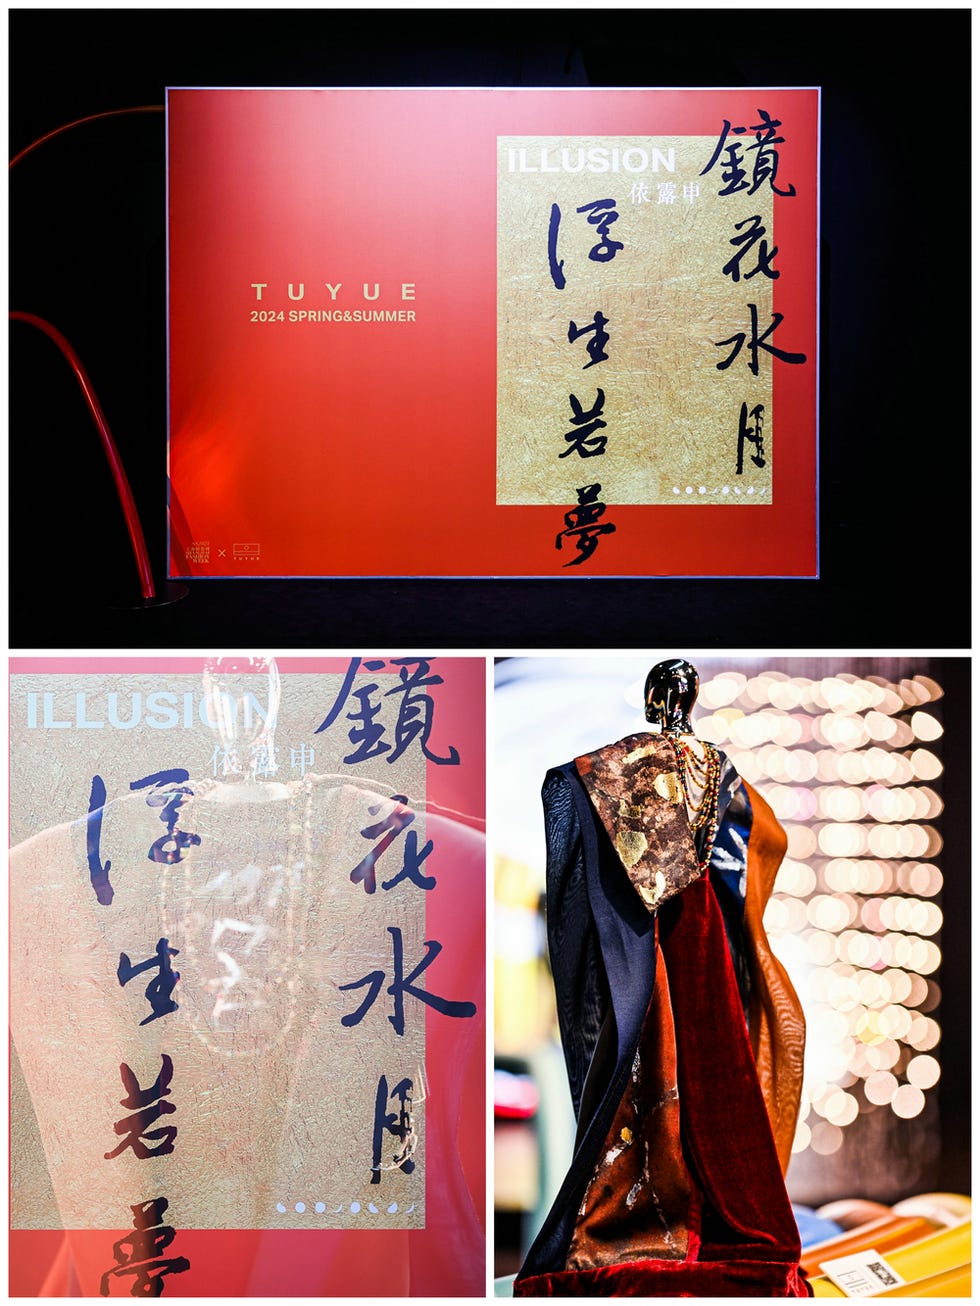 TUYUE
2024 SPRING&SUMMER
ILLUSION
依露申
鏡花水月
浮生若夢
FASHION
WEEK
×
TUYUE
ILLUSION
依露申
鏡花水月
浮生若夢